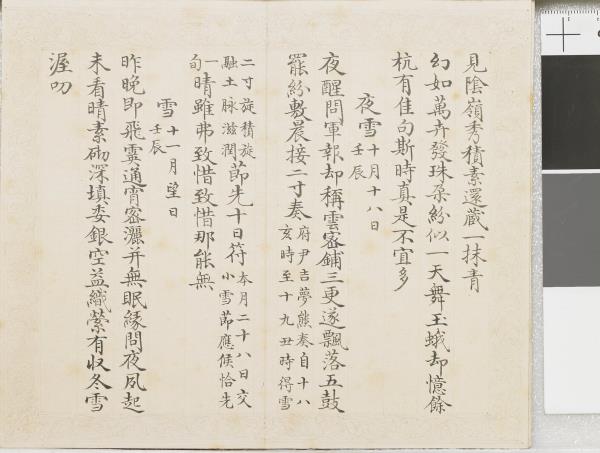 見陰嶺秀積素還藏一抹青
幻如萬卉發珠朶紛似一天舞玉蛾却憶餘
杭有佳句斯時真是不宜多
夜雪 十月十八日
壬辰
夜醒問軍報却稱雲密鋪三更遂飄落五鼓
罷紛敷晨接二寸奏 府尹吉夢熊奏自十八
亥時至十九丑時得雪
二寸旋積旋
融土脉滋潤
節先十日符 本月二十八日交
小雪節應候恰先
一旬
晴雖弗致惜致惜那能無
雪 十一月望日
壬辰
昨晚即飛霙通宵密灑并無眠緣問夜夙起
未看晴素砌深填委銀空益織縈有収冬雪
渥叨